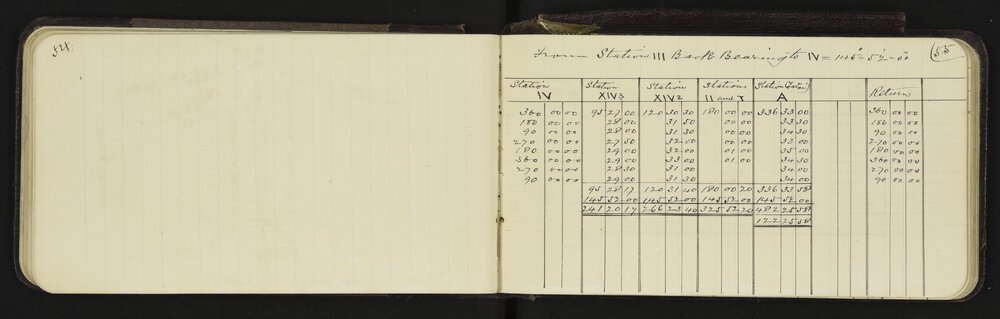 54
55
From Station III Back Bearing to IV = 145° 52' 00"
Station IV | Station XIV3 | Station XIV2 | Stations II and T | Station A | Return
360 00 00 | 95 27 00 | 120 30 30 | 180 00 00 | 336 33 00 | 360 00 00
180 00 00 | 28 00 | 31 50 | 00 00 | 33 30 | 180 00 00
90 00 00 | 28 00 | 31 30 | 00 00 | 34 30 | 90 00 00
270 00 00 | 27 50 | 32 00 | 00 00 | 33 00 | 270 00 00
180 00 00 | 29 00 | 32 00 | 01 00 | 35 00 | 180 00 00
360 00 00 | 29 00 | 33 00 | 01 00 | 34 30 | 360 00 00
270 00 00 | 28 30 | 31 00 | 34 00 | 270 00 00
90 00 00 | 29 00 | 31 30 | 34 00 | 90 00 00
95 28 17 | 120 31 40 | 180 00 20 | 336 33 58
145 52 00 | 145 52 00 | 145 52 00 | 145 52 00
241 20 17 | 266 23 40 | 325 52 20 | 482 25 58
122 25 58